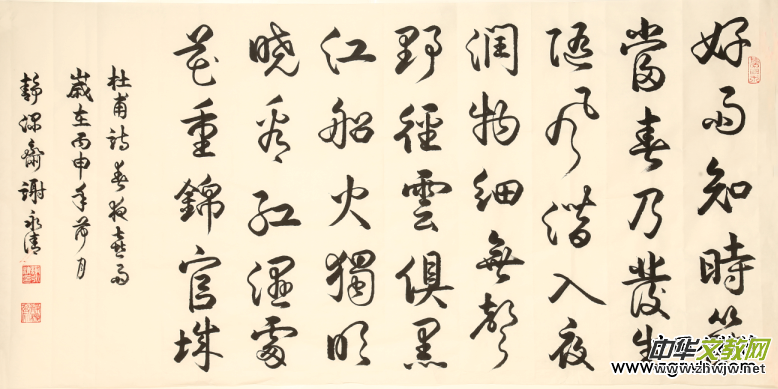 好雨知時節
當春乃發生
随風潜入夜
润物细無聲
野徑雲俱黑
江船火獨明
晓看红濕處
花重錦官城
杜甫诗春夜喜雨
歲在丙申年荷月
静深齋谢永清
中华文教网
www.zhwjw.net